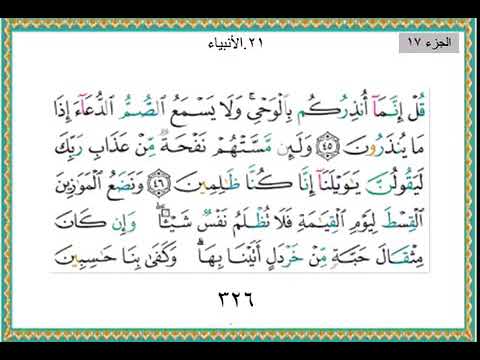 الجزء ١٧
٢١.الأنبياء
قُلْ إِنَّمَآ أُنذِرُكُم بِٱلْوَحْىِ ۚ وَلَا يَسْمَعُ ٱلصُّمُّ ٱلدُّعَآءَ إِذَا
مَا يُنذَرُونَ ٤٥ وَلَئِن مَّسَّتْهُمْ نَفْحَةٌ مِّنْ عَذَابِ رَبِّكَ
لَيَقُولُنَّ يَـٰوَيْلَنَآ إِنَّا كُنَّا ظَـٰلِمِينَ ٤٦ وَنَضَعُ ٱلْمَوَٰزِينَ
ٱلْقِسْطَ لِيَوْمِ ٱلْقِيَـٰمَةِ فَلَا تُظْلَمُ نَفْسٌ شَيْـًٔا ۖ وَإِن كَانَ
مِثْقَالَ حَبَّةٍ مِّنْ خَرْدَلٍ أَتَيْنَا بِهَا ۗ وَكَفَىٰ بِنَا حَـٰسِبِينَ
٣٢٦